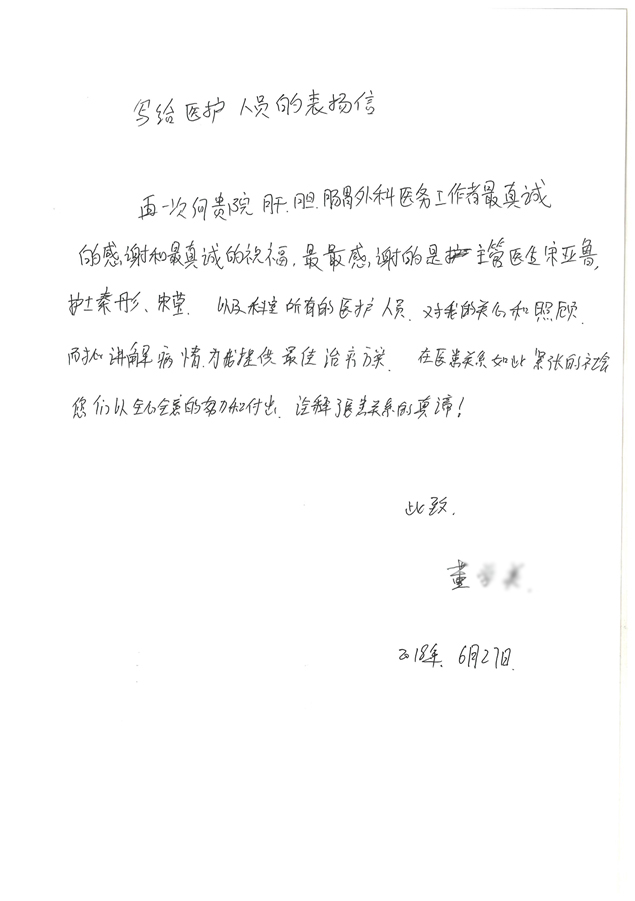 写给医护人员的表扬信
再一次向贵院肝.胆.肠胃外科医务工作者最真诚
的感谢和最真诚的祝福,最最感谢的是主管医生宋亚鲁,
护士秦彤、宋莹. 以及科室所有的医护人员.对我的关心和照顾.
耐心讲解病情.为我提供最佳治疗方案. 在医患关系如此紧张的社会
您们以全心全意的努力和付出.诠释了医患关系的真谛!
此致.
董
2018年.6月27日.